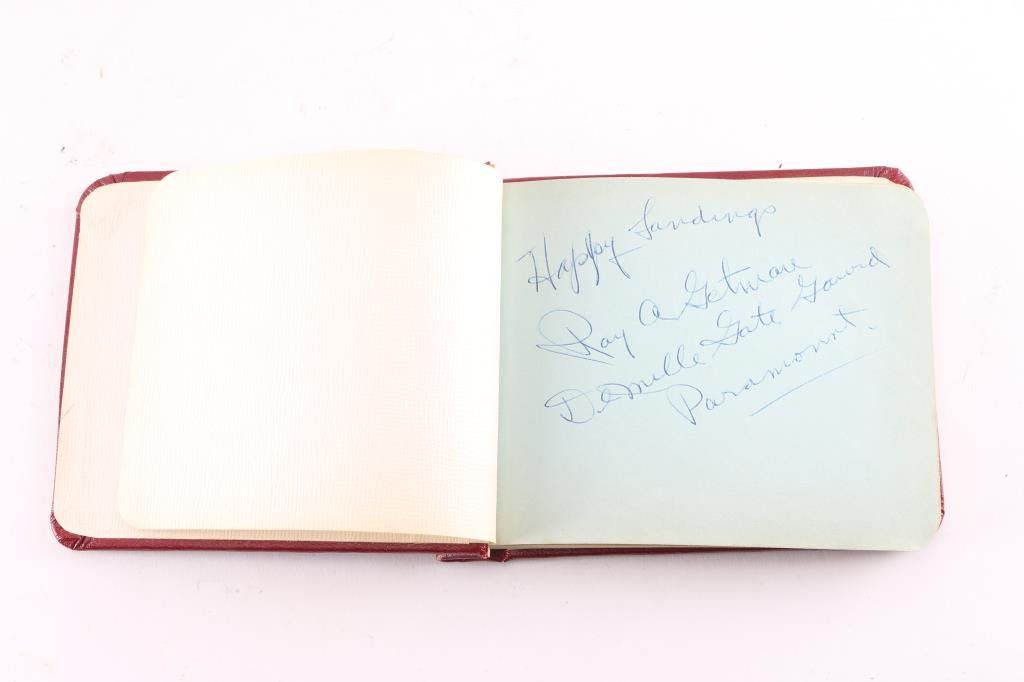 Happy Landings
Ray A Getman
DeMille Gate Gaurd
Paramount.